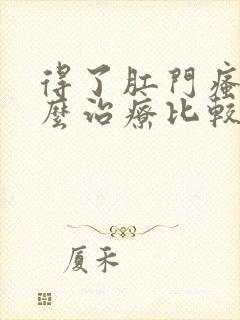 得了肛門瘙
麼治療比較
厦禾